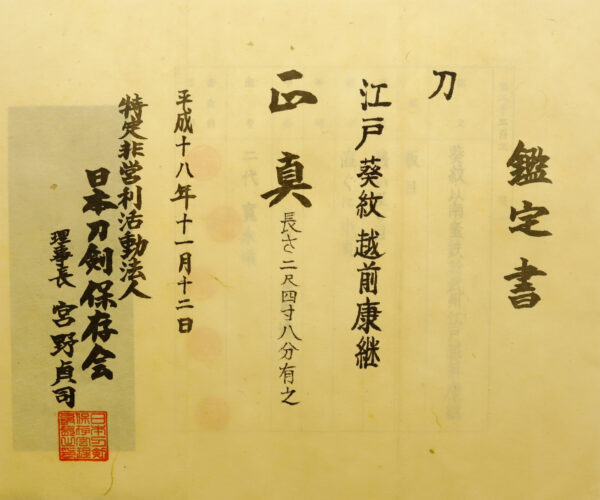 鑑定書
刀
江戸 葵紋 越前康継
正真
長さ二尺四寸八分有之
平成十八年十一月十二日
特定非営利活動法人
日本刀剣保存会
理事長 宮野貞司